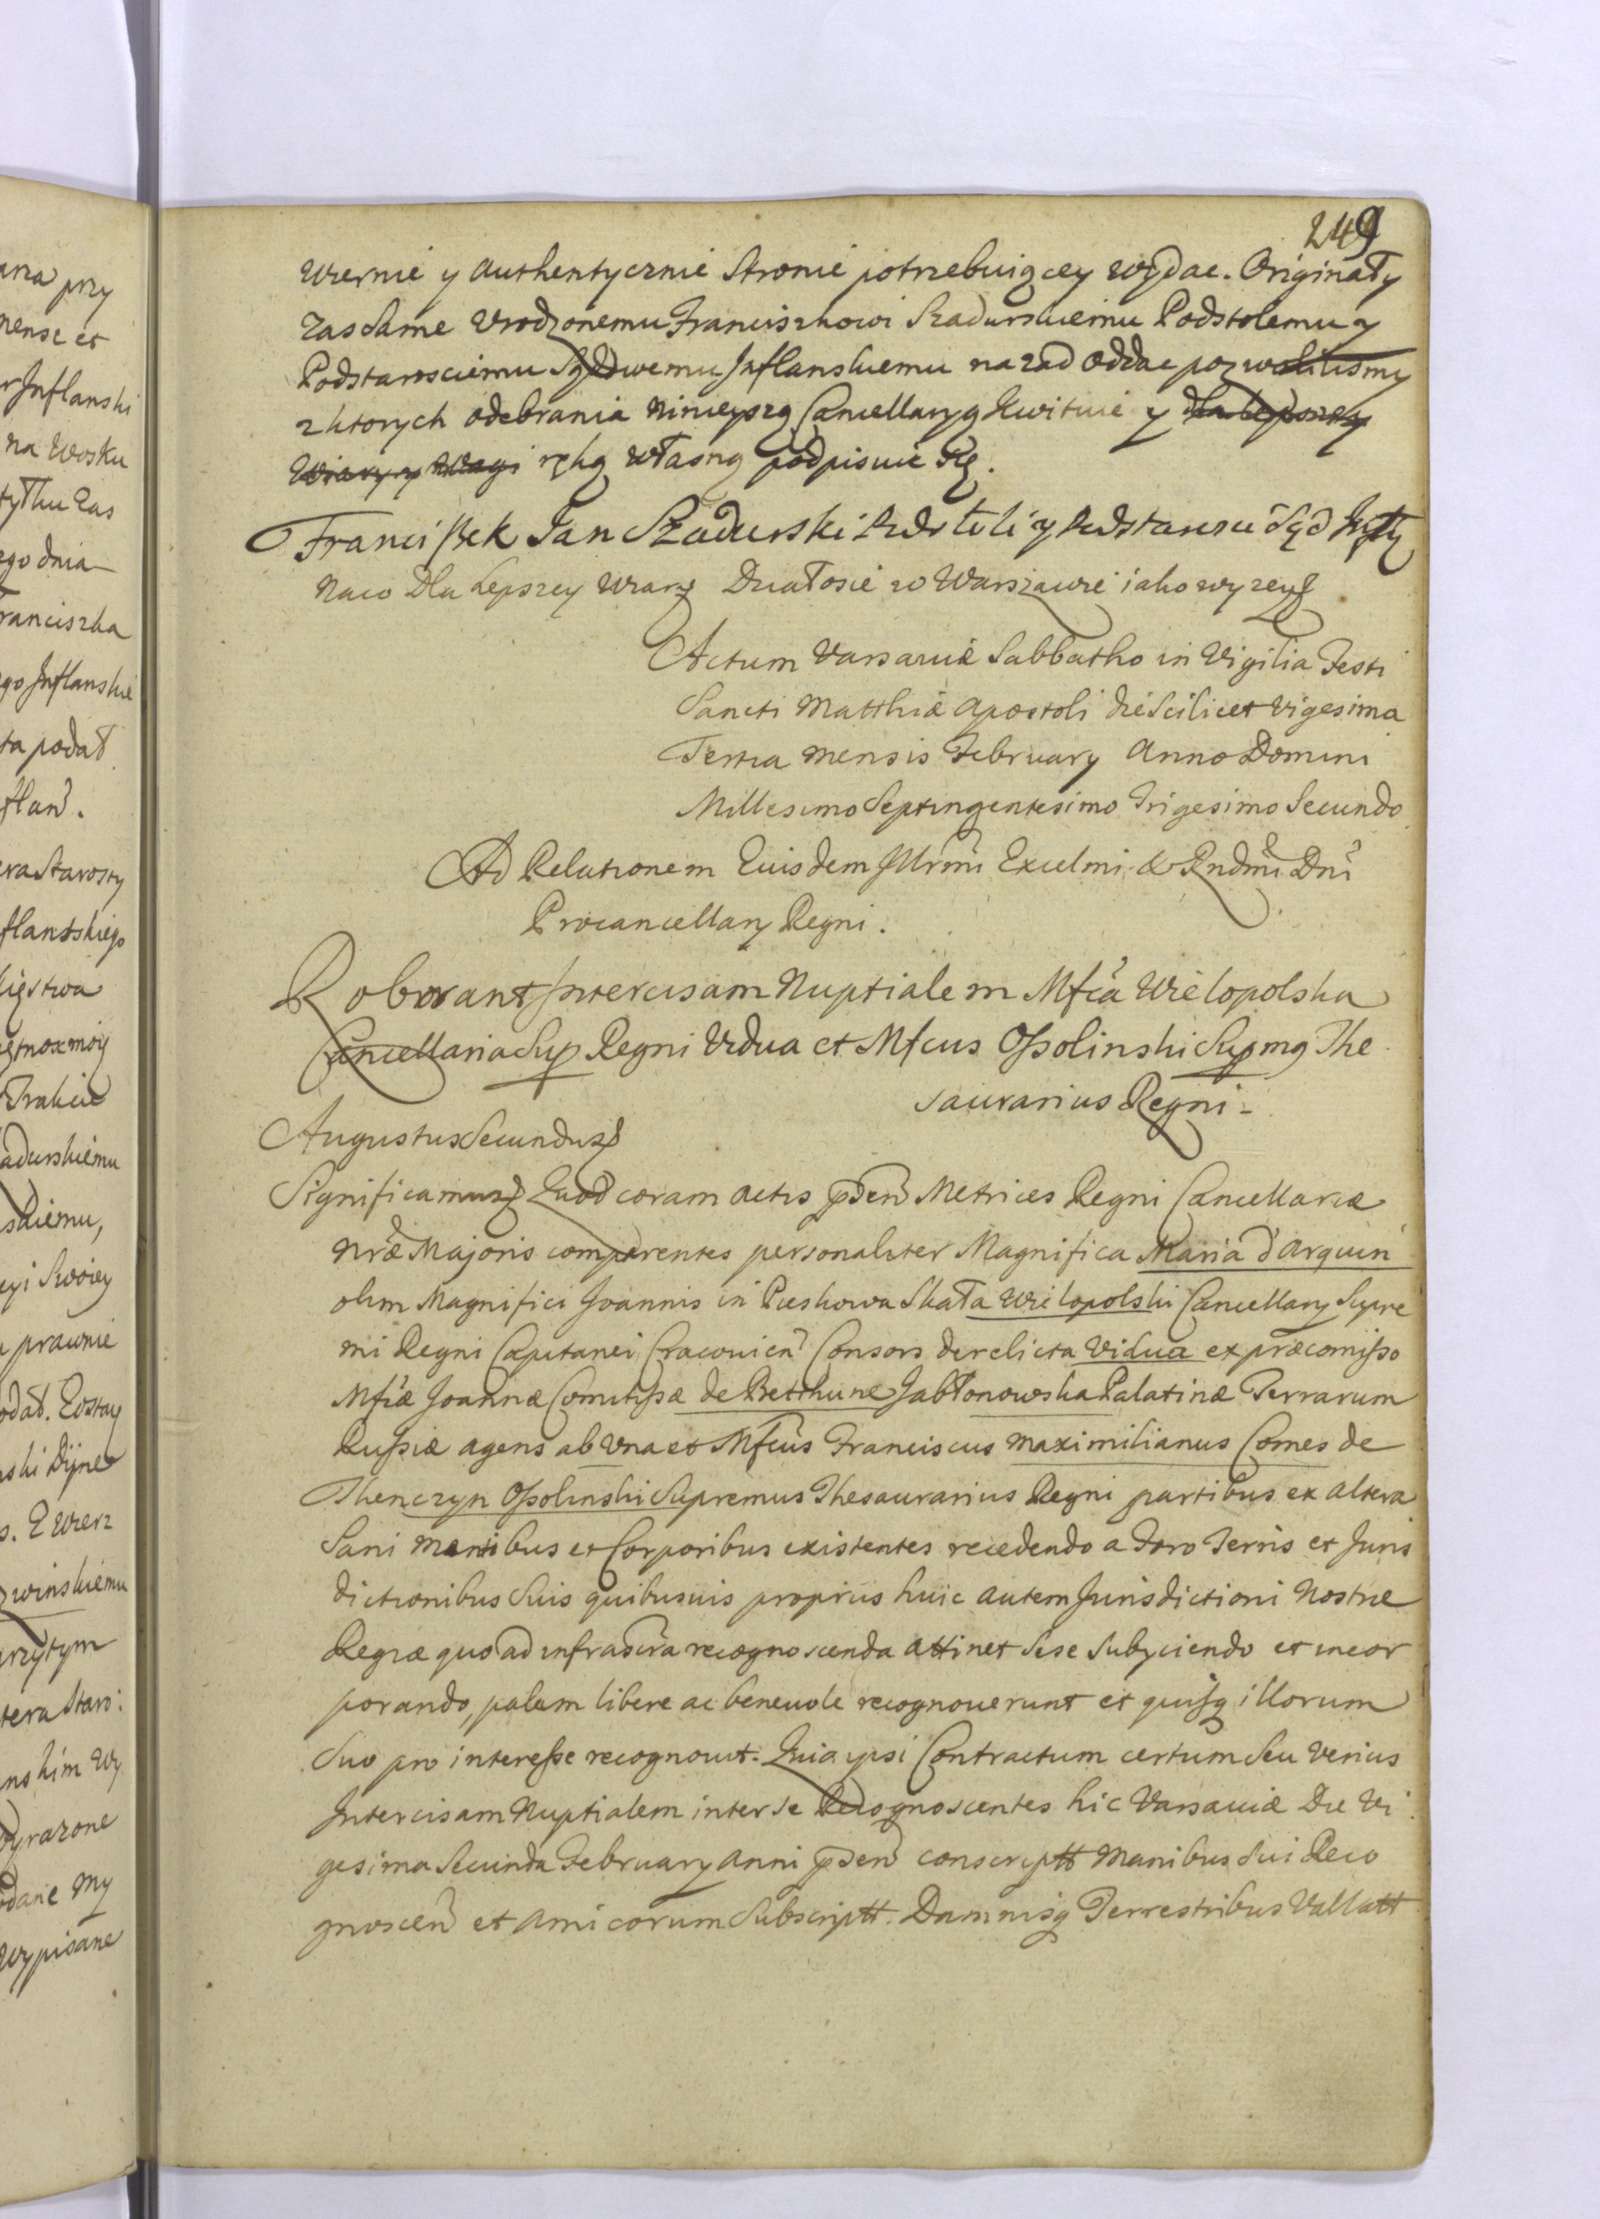 249
wiernie y authentycznie stronie potrzebuiącey wydac. Originały
zas same Urodzonemu Franciszkowi Szadurskiemu Podstolemu y
Podstarosciemu Sądowemu Inflanskiemu nazad oddac pozwolilismy
z ktorych odebrania ninieyszą Cancellaryą kwituie y dla lepszey
wiary y wagi ręką własną podpisuie się.
Franciszek Jan Szadurski Podstoli y Podstarosci Sąd Inflt
Naco Dla Lepszey wiary Działosie w Warszawie iako wyzey
Actum Varsaviæ Sabbatho in Vigilia Festi
Sancti Matthiæ Apostoli die Scilicet Vigesima
Tertia mensis February Anno Domini
Millesimo Septingentesimo Trigesimo Secundo
Ad Relationem Eiusdem Illrmi Excelmi & Rndmi Dni
Procancellary Regni.
Roborant Intercisam Nuptialem Mfca Wielopolska
Cancellaria Sup Regni Vidua et Mfcus Ossolinski Supmg The
saurarius Regni -
Augustus Secundus
Significamus Quod coram actis pden Metrices Regni Cancellariæ
Nræ Majoris comparentes personaliter Magnifica Maria d'Arquin
olim Magnifici Joannis in Pieskowa Skała Wielopolski Cancellary Supre
mi Regni Capitanei Cracovien Consors derelicta Vidua ex præcomisso
Mfcæ Joannæ Comitissæ de Betthune Jabłonowska Palatinæ Terrarum
Russiæ agens ab una et Mfcus Franciscus Maximilianus Comes de
Thenczyn Ossolinski Supremus Thesaurarius Regni partibus ex altera
Sani mentibus et Corporibus existentes recedendo a Foro Terris et Juris
dictionibus Suis quibusuis propriis huic autem Jurisdictioni Nostræ
Regiæ quo ad infrascra recognoscenda attinet sese subyciendo et incor
porando, palam libere ac beneuole recognouerunt et quisq illorum
suo pro interesse recognouit. Quia ipsi Contractum certum seu verius
Intercisam Nuptialem inter se Recognoscentes hic Varsaviæ Die Vi
gesima Secunda February anni pden conscriptt Manibus sui Reco
gnoscen et Amicorum Subscriptt. Damnisq Terrestribus Vallatt